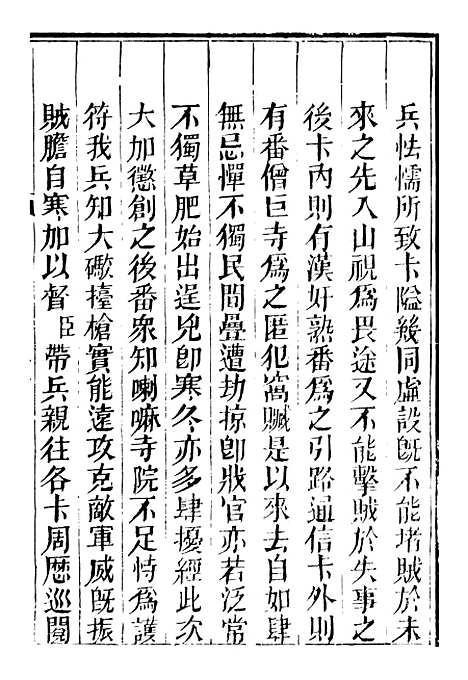 兵怯懦所致卡隘幾同虛設旣不能堵賊於未
來之先入山視爲畏途又不能擊賊於失事之
後卡內則有漢奸熟番爲之引路通信卡外則
有番僧巨寺爲之匿犯窩贓是以來去自如肆
無忌憚不獨民間疊遭劫掠卽戕官亦若泛常
不獨草肥始出逞兇卽寒冬亦多肆擾經此次
大加懲創之後番衆知喇嘛寺院不足恃爲護
符我兵知大礮擡槍實能遠攻克敵軍威旣振
賊膽自寒加以督臣帶兵親往各卡周歷巡閱